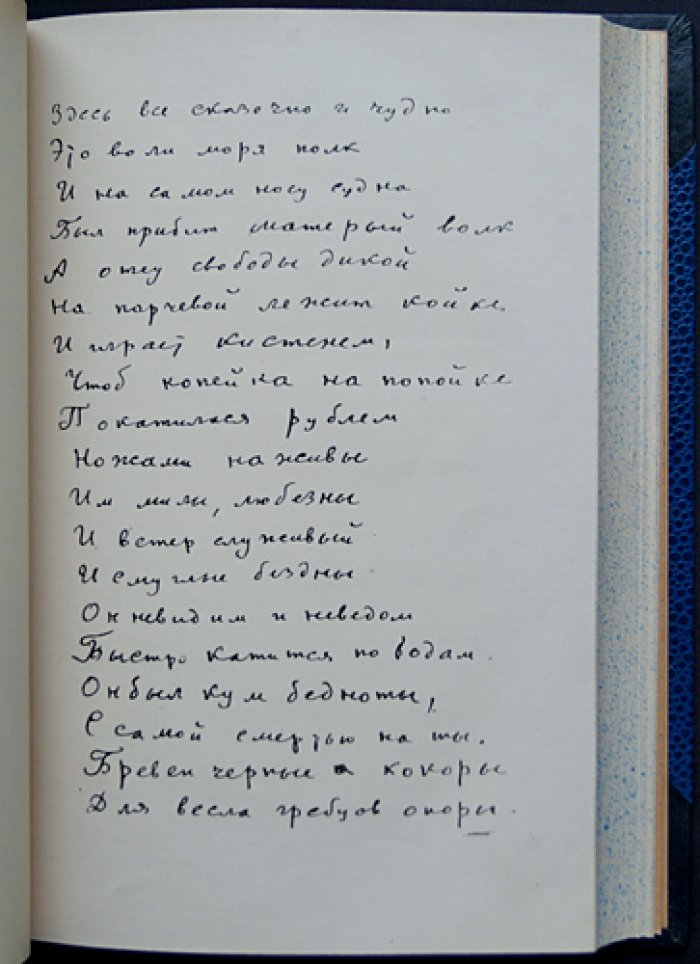 Здесь все сказочно и чудно
Это воли моря полк
И на самом носу судна
Был прибит матерый волк
А отцу свободы дикой
На парчевой лежит койке
И играет кистенем,
Чтоб копейка на попойке
Покатилася рублем
Ножами наживы
Им милы, любезны
И ветер служивый
И смуглые бездны
Он невидим и неведом
Быстро катится по водам.
Он был кум бедноты,
С самой смертью на ты.
Бревен черные кокоры
Для весла гребцов опоры.